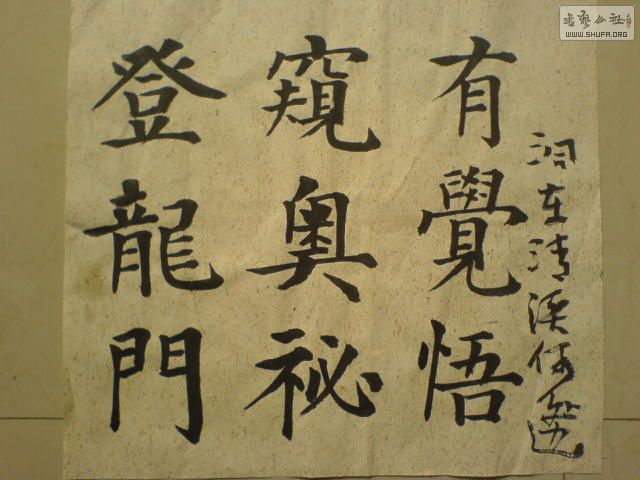 有覺悟
窺奧祕
登龍門
在清溪
書藝公社
WWW.SHUFA.ORG